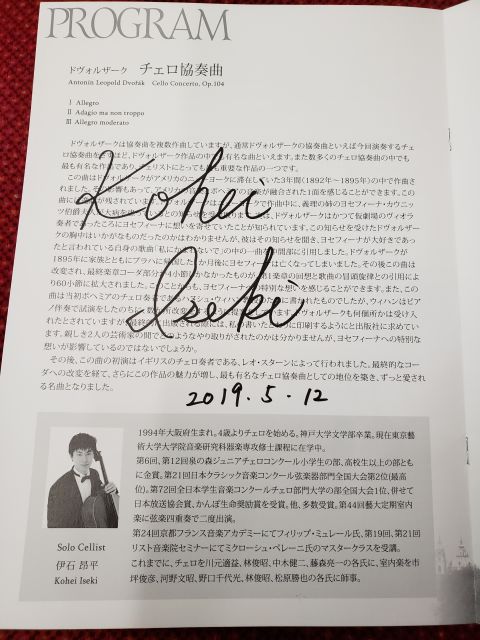 PROGRAM
ドヴォルザーク チェロ協奏曲
Antonín Leopold Dvořák Cello Concerto, Op.104
Ⅰ Allegro
Ⅱ Adagio ma non troppo
Ⅲ Allegro moderato
ドヴォルザークは協奏曲を複数作曲していますが、通常ドヴォルザークの協奏曲といえば今回演奏するチェ
ロ協奏曲を
ほど、ドヴォルザーク作品の中
有名な曲といえます。また数多くのチェロ協奏曲の中でも
最も有名な作品であり、チェリストにとって
重要な作品の一つです。
この曲はドヴォルザークがアメリカのニューヨークに滞在していた3年間(1892年〜1895年)の中で作曲さ
れました。
アメリカの
の音楽が融合された1面を感じることができます。この
曲に
が残されています。
作曲中に、義理の姉ヨセフィーナ・カウニッ
ツ伯爵夫人
ドヴォルザークはかつて仮劇場のヴィオラ
奏者であったころにヨセフィーナに想いを寄せていたことが知られています。この知らせを受けたドヴォルザー
クの胸中はいかがなものだったのかはわかりませんが、彼はその知らせを聞き、ヨセフィーナが大好きであっ
たと言われている自身の歌曲「私にか
」の中の一曲
間部に引用しました。ドヴォルザークが
1895年に家族とともにプラハに帰国した
か月後にヨセフィーナは亡くなってしまいました。その後この曲は
改変され、最終楽章コーダ部分
4小節
かなかったものが、第1楽章の回想と歌曲の冒頭旋律との引用によ
り60小節に拡大されました。このことからも、ヨセフィーナへの特別な想いを感じることができます。また、この
曲は当初ボヘミアのチェロ奏者であるハヌシュ・ウィハン
に書かれたものでしたが、ウィハンはピア
ノ伴奏で試演をしたのちに
改
ドヴォルザークも何個所かは受け入
れたとされていますが、
出版される際には、私の書いたとおりに印刷するようにと出版社に求めてい
ます。親しき2人の芸術家の間でどのようなやり取りがされたのかは分かりませんが、ヨセフィーナへの特別な
想いが影響しているのではないでしょうか。
その後、この曲の初演はイギリスのチェロ奏者である、レオ・スターンによって行われました。最終的なコー
ダへの改変を経て、さらにこの作品の魅力が増し、最も有名なチェロ協奏曲としての地位を築き、ずっと愛され
る名曲となりました。
Kohei
Iseki
2019.5.12
1994年大阪府生まれ。4歳よりチェロを始める。神戸大学文学部卒業。現在東京藝
術大学大学院音楽研究科器楽専攻修士課程に在学中。
第6回、第12回泉の森ジュニアチェロコンクール小学生の部、高校生以上の部とも
に金賞。第21回日本クラシック音楽コンクール弦楽器部門全国大会第2位(最高
位)。第72回全日本学生音楽コンクールチェロ部門大学の部全国大会1位、併せて
日本放送協会賞、かんぽ生命奨励賞を受賞。他、多数受賞。第44回藝大定期室内
楽に弦楽四重奏で二度出演。
第24回京都フランス音楽アカデミーにてフィリップ・ミュレール氏、第19回、第21回
リスト音楽院セミナーにてミクローシュ・ペレーニ氏のマスタークラスを受講。
これまでに、チェロを川元適益、林俊昭、中木健二、藤森亮一の各氏に、室内楽を市
坪俊彦、河野文昭、野口千代光、林俊昭、松原勝也の各氏に師事。
Solo Cellist
伊石 昂平
Kohei Iseki